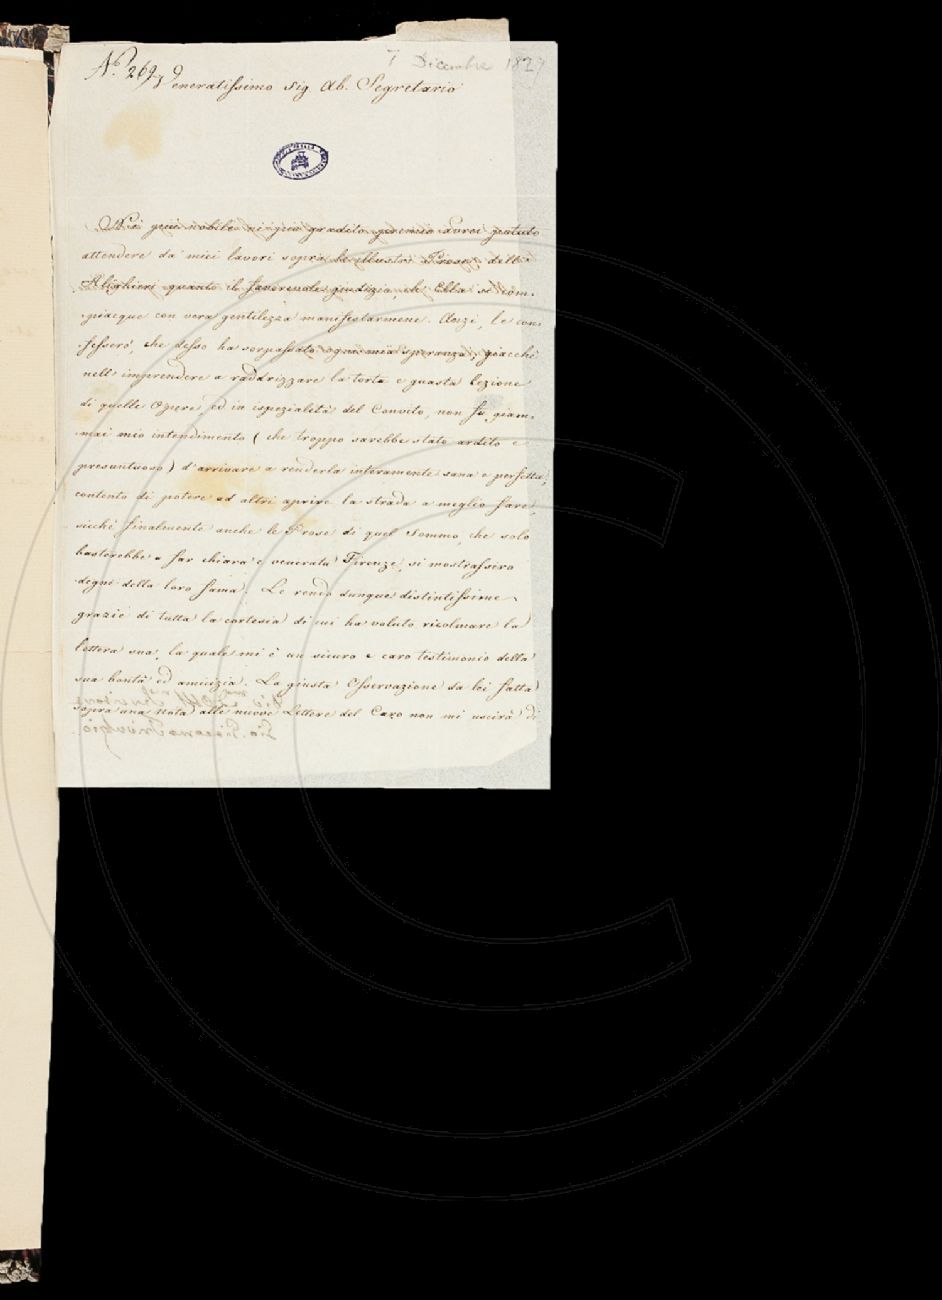 7 Dicembre 1827
N.º 269
Veneratissimo Sig. Ab. Segretario
Nè più nobile nè più gradito premio avrei potuto
attendere da' miei lavori sopra le illustri Prose dell'
Alighieri quanto il favorevole giudizio, ch' Ella si com-
-piacque con vera gentilezza manifestarmene. Anzi, le con-
-fesserò, che desso ha sorpassato ogni mia speranza, giacchè
nell' imprendere a raddrizzare la torta e guasta lezione
di quelle Opere, ed in ispezialità del Convito, non fu giam-
-mai mio intendimento ( che troppo sarebbe stato ardito e
presuntuoso ) d' arrivare a renderla interamente sana e perfetta,
contento di potere ad altri aprire la strada a meglio fare,
sicchè finalmente anche le Prose di quel Sommo, che solo
basterebbe a far chiara e venerata Firenze, si mostrassero
degne della loro fama. Le rendo dunque distintissime
grazie di tutta la cortesia di cui ha voluto ricolmare la
lettera sua, la quale mi è un sicuro e caro testimonio della
sua bontà ed amicizia. La giusta Osservazione da lei fatta
sopra una nota alle nuove Lettere del Caro non mi uscirà di
Gio. Giacomo Trivulzio